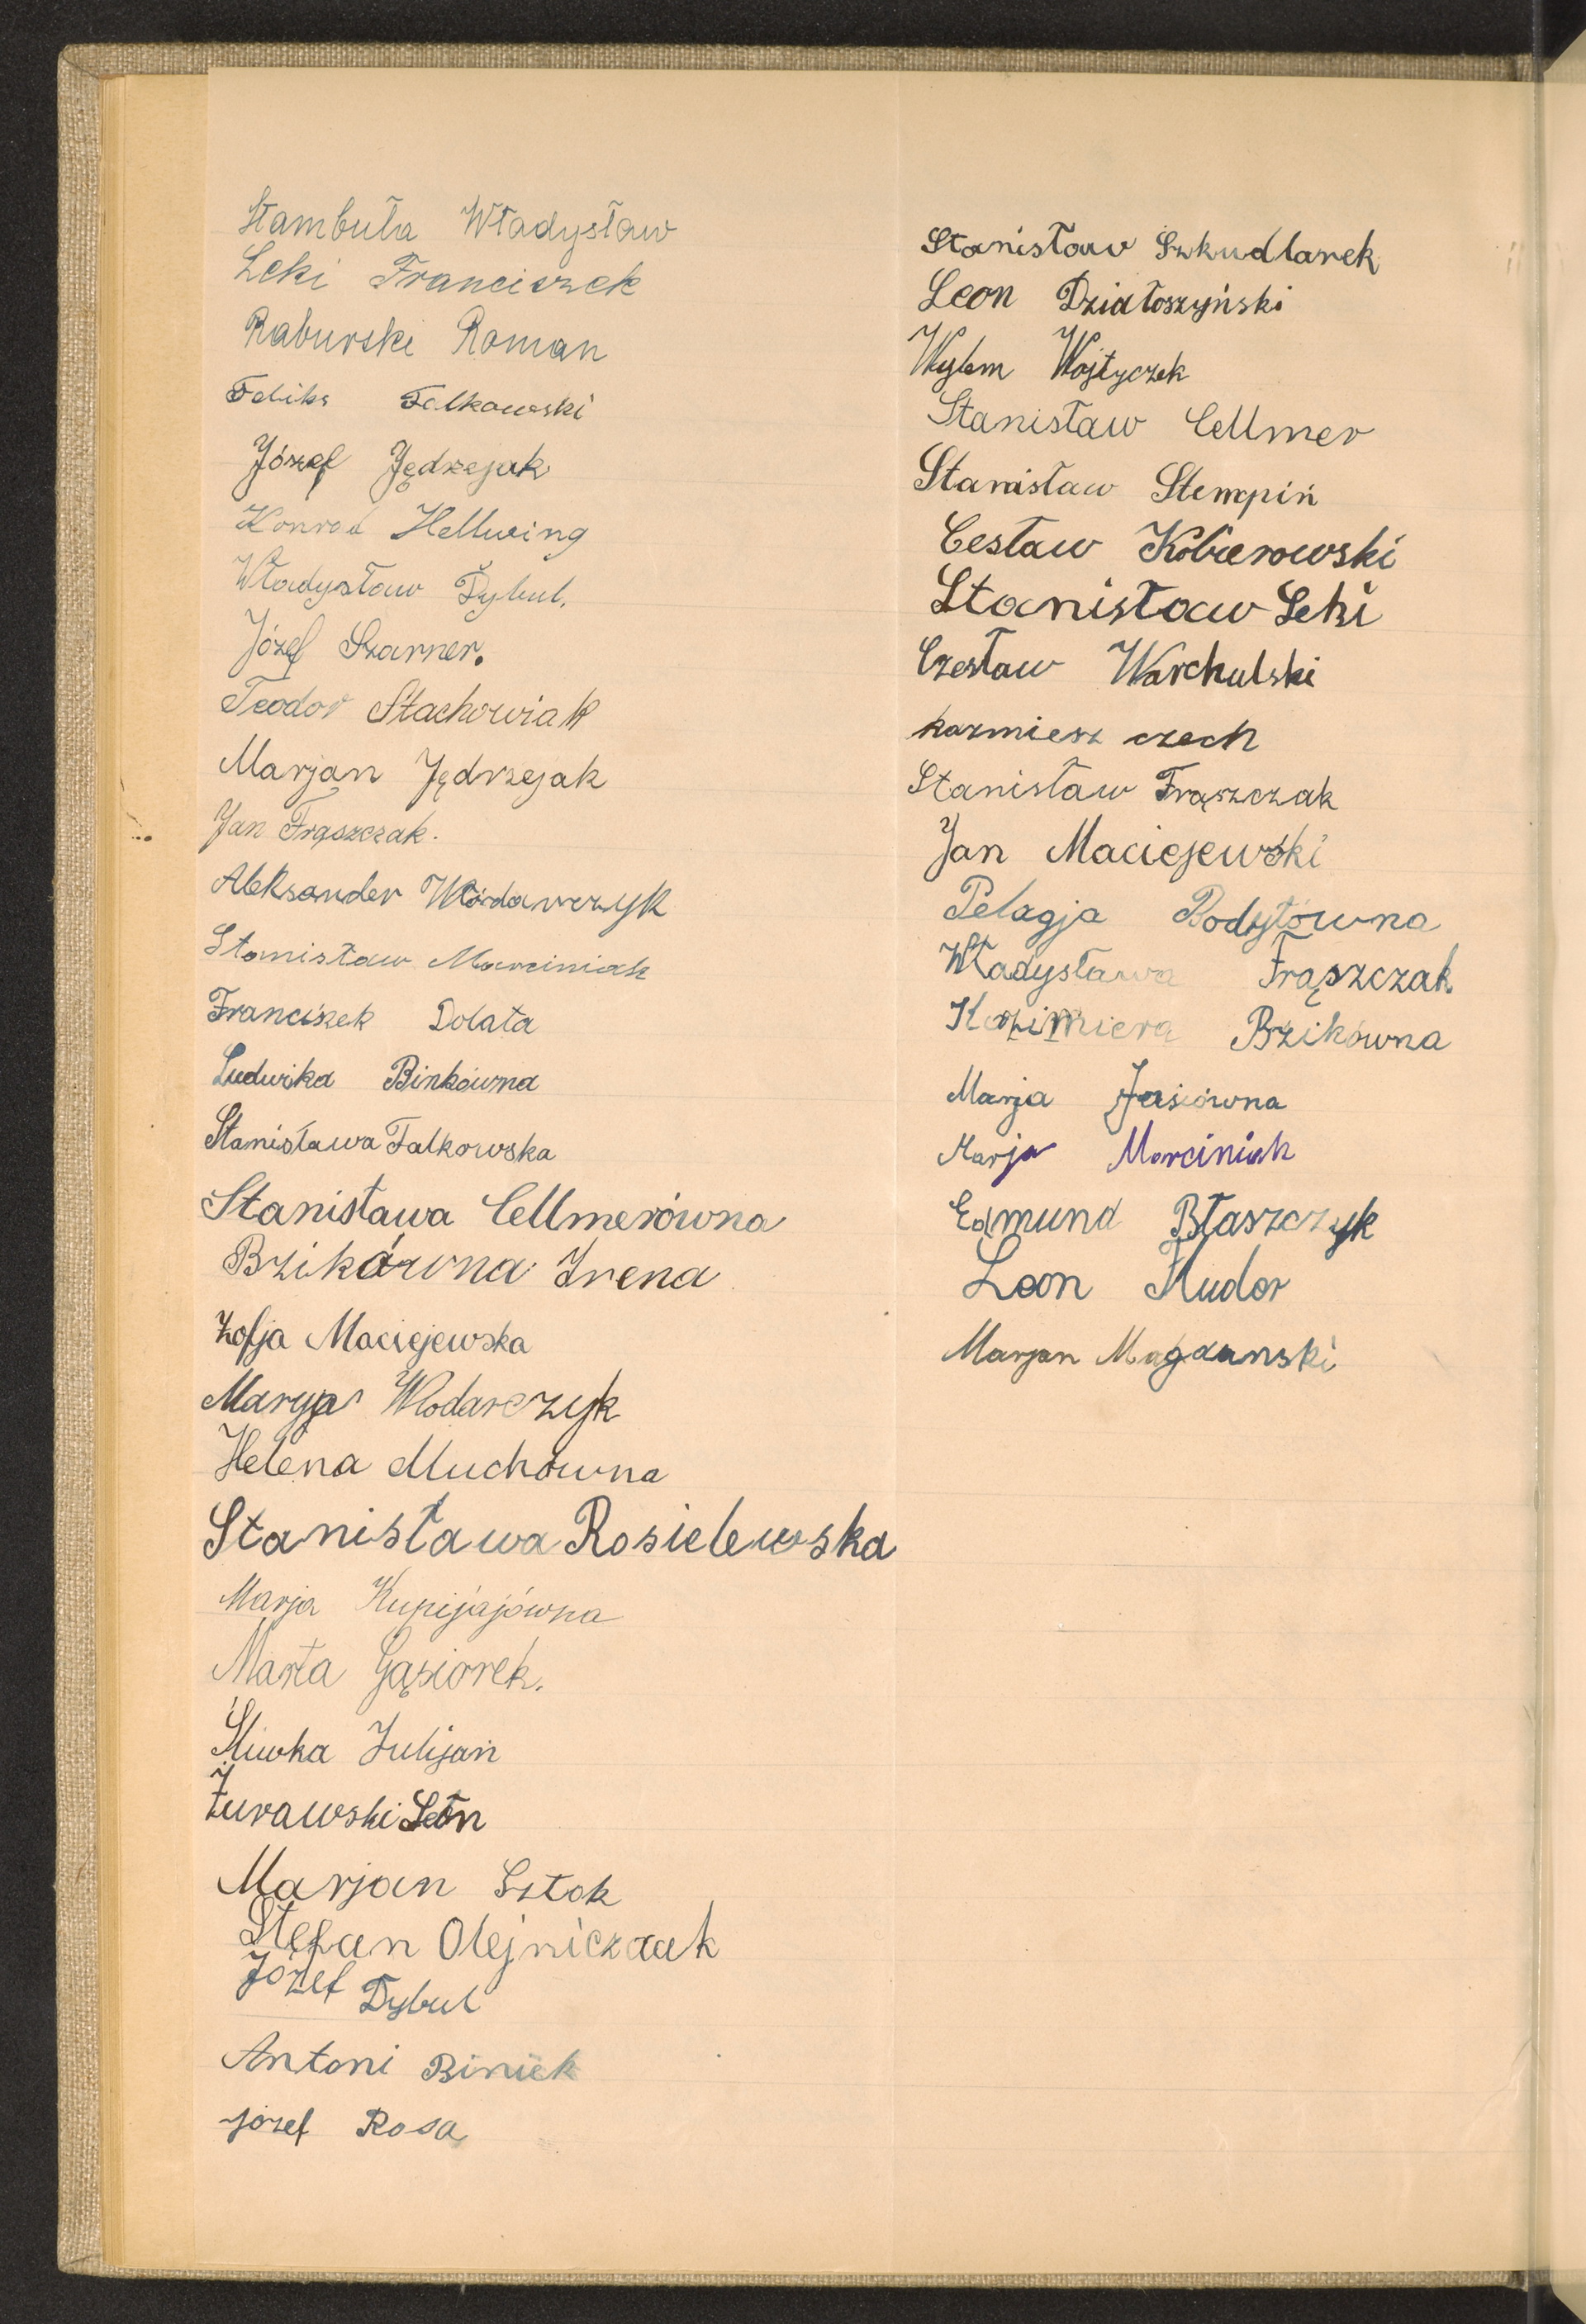 Stambuła Władysław
Leki Franciszek
Raburski Roman
Feliks Falkowski
Józef Jędrzejak
Konrad Hellwing
Władysław Dybul.
Józef Szarner.
Teodor Stachowiak
Marjan Jędrzejak
Jan Frąszczak.
Aleksander Włódarczyk
Stanisław Marciniak
Franciszek Dolata
Ludwika Binkówna
Stanisława Falkowska
Stanisława Cellmerówna
Bzikówna Irena
Zofja Maciejewska
Maryja Włodarczyk
Helena Muchówna
Stanisława Rosielewska
Marja Kupijajówna
Marta Gąsiorek.
Śliwka Julijan
Żurawski Leon
Marjan Sztok
Stefan Olejniczaak
Józef Dybul
Antoni Biniek
józef Rosa
Stanisław Szkudlarek
Leon Działoszyński
Wylem Wojtyczek
Stanisław Cellmer
Stanisław Stempiń
Cesław Kobierowski
Stanisław Leki
Czesław Warchulski
kazmiesz czech
Stanisław Frąszczak
Jan Maciejewski
Pelagja Bodyłówna
Władysława Frąszczak
Kazimiera Bzikówna
Marja Jasiówna
Marja Marciniak
Edmund Błaszczyk
Leon Kudor
Marjan Magdanski